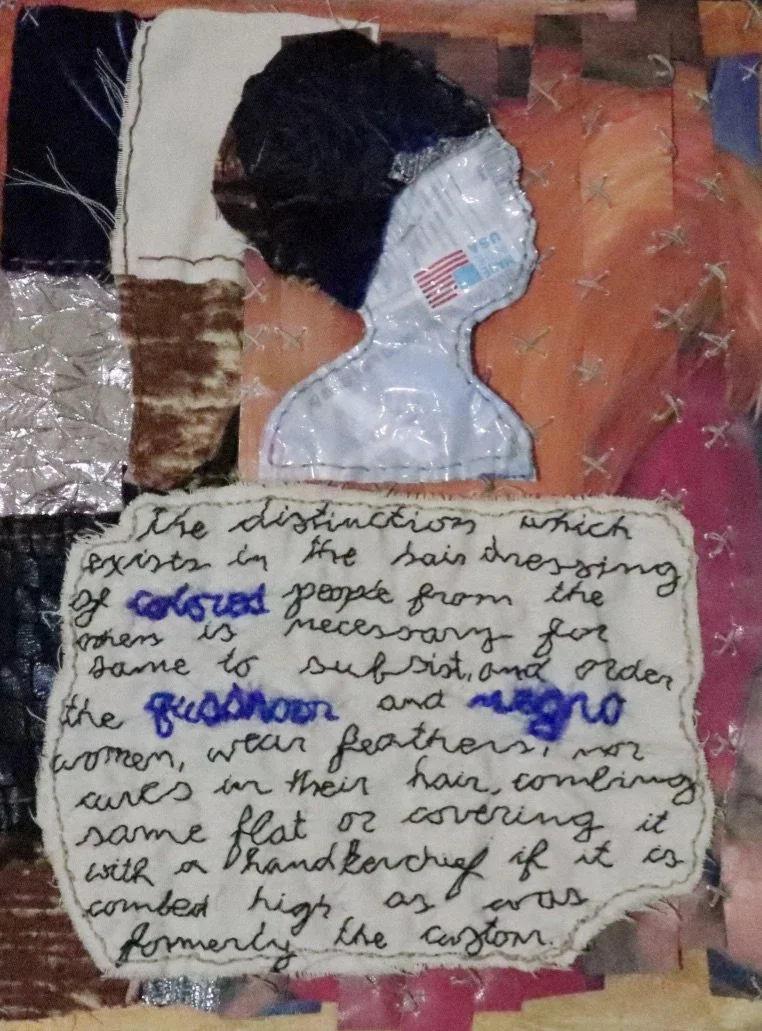 MADE
USA
the distinction which
exists in the hair dressing
of colored people from the
others is necessary for
same to subsist, and order
the quadroon and negro
women, wear feathers, nor
curls in their hair, combing
same flat or covering it
with a handkerchief if it is
combed high as was
formerly the custom.